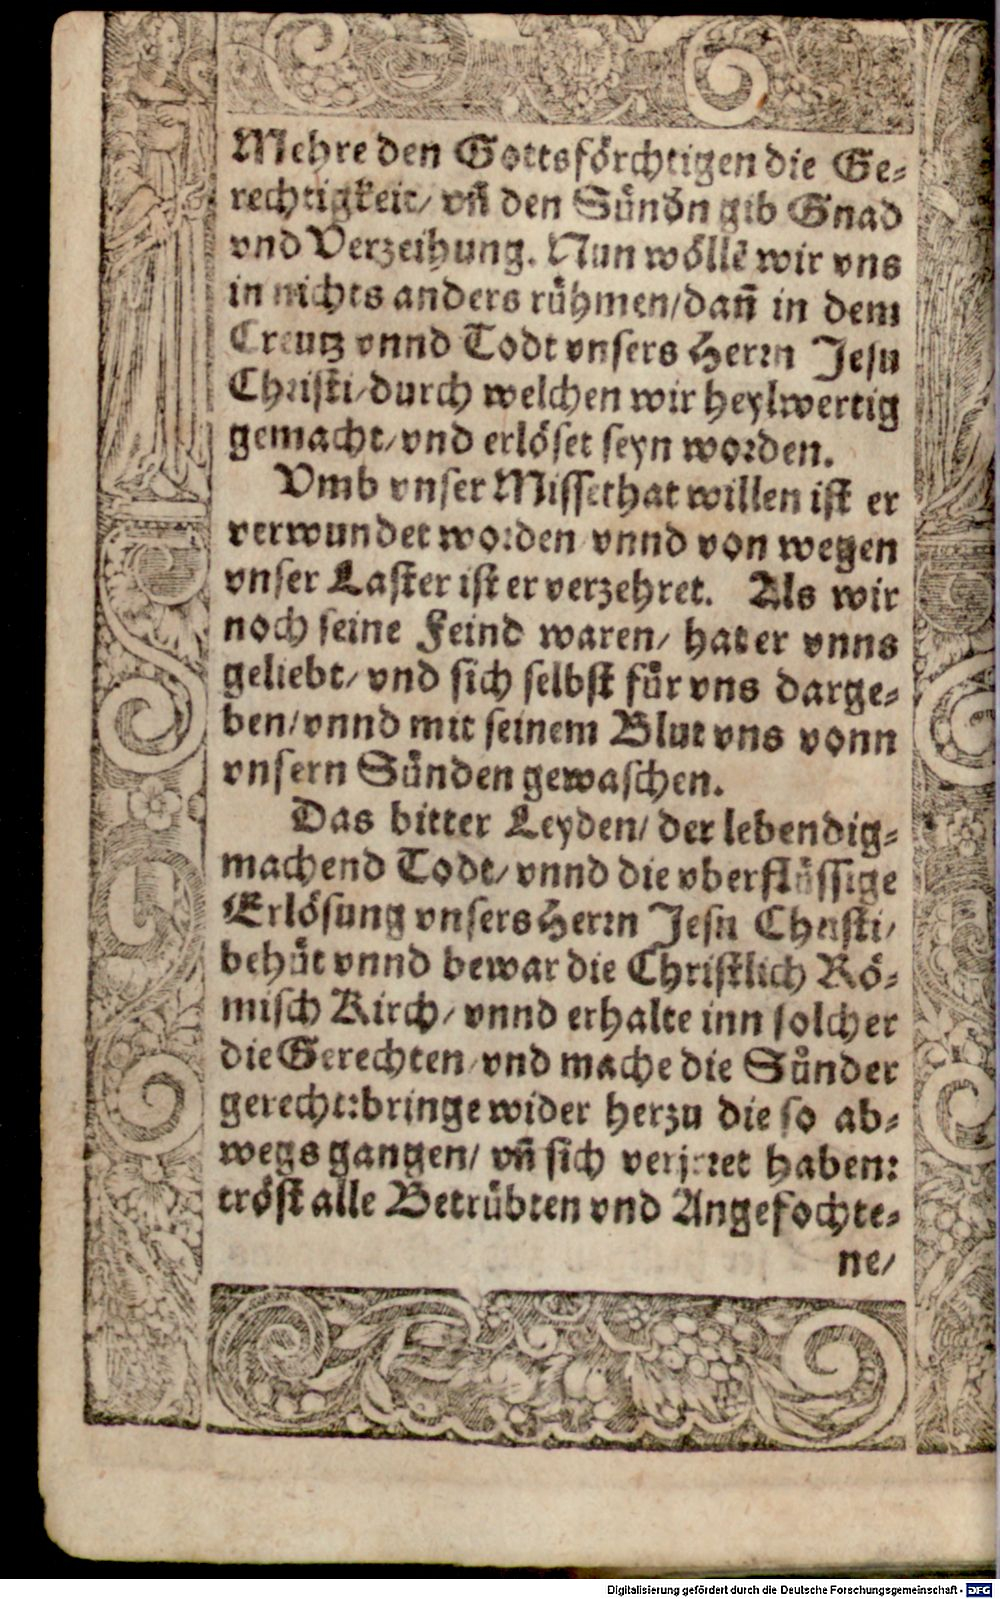 Mehre den Gottsförchtigen die Ge-
rechtigkeit/ vñ den Sündn gib Gnad
vnd Verzeihung. Nun wöllẽ wir vns
in nichts anders rühmen/dañ in dem
Creutz vnnd Todt vnsers Herrn Jesu
Christi/durch welchen wir heylwertig
gemacht/vnd erlöset seyn worden.
Vmb vnser Missethat willen ist er
verwundet worden vnnd von wegen
vnser Laster ist er verzehret. Als wir
noch seine Feind waren/ hat er vnns
geliebt/ vnd sich selbst für vns darge-
ben/vnnd mit seinem Blut vns vonn
vnsern Sünden gewaschen.
Das bitter Leyden/ der lebendig-
machend Todt/ vnnd die vberflüssige
Erlösung vnsers Herrn Jesu Christi/
behüt vnnd bewar die Christlich Rö-
misch Kirch/ vnnd erhalte inn solcher
die Gerechten/vnd mache die Sünder
gerecht:bringe wider herzu die so ab-
wegs gangen/ vñ sich verjrret haben:
tröst alle Betrübten vnd Angefochte-
ne/
Digitalisierung gefördert durch die Deutsche Forschungsgemeinschaft - DFG